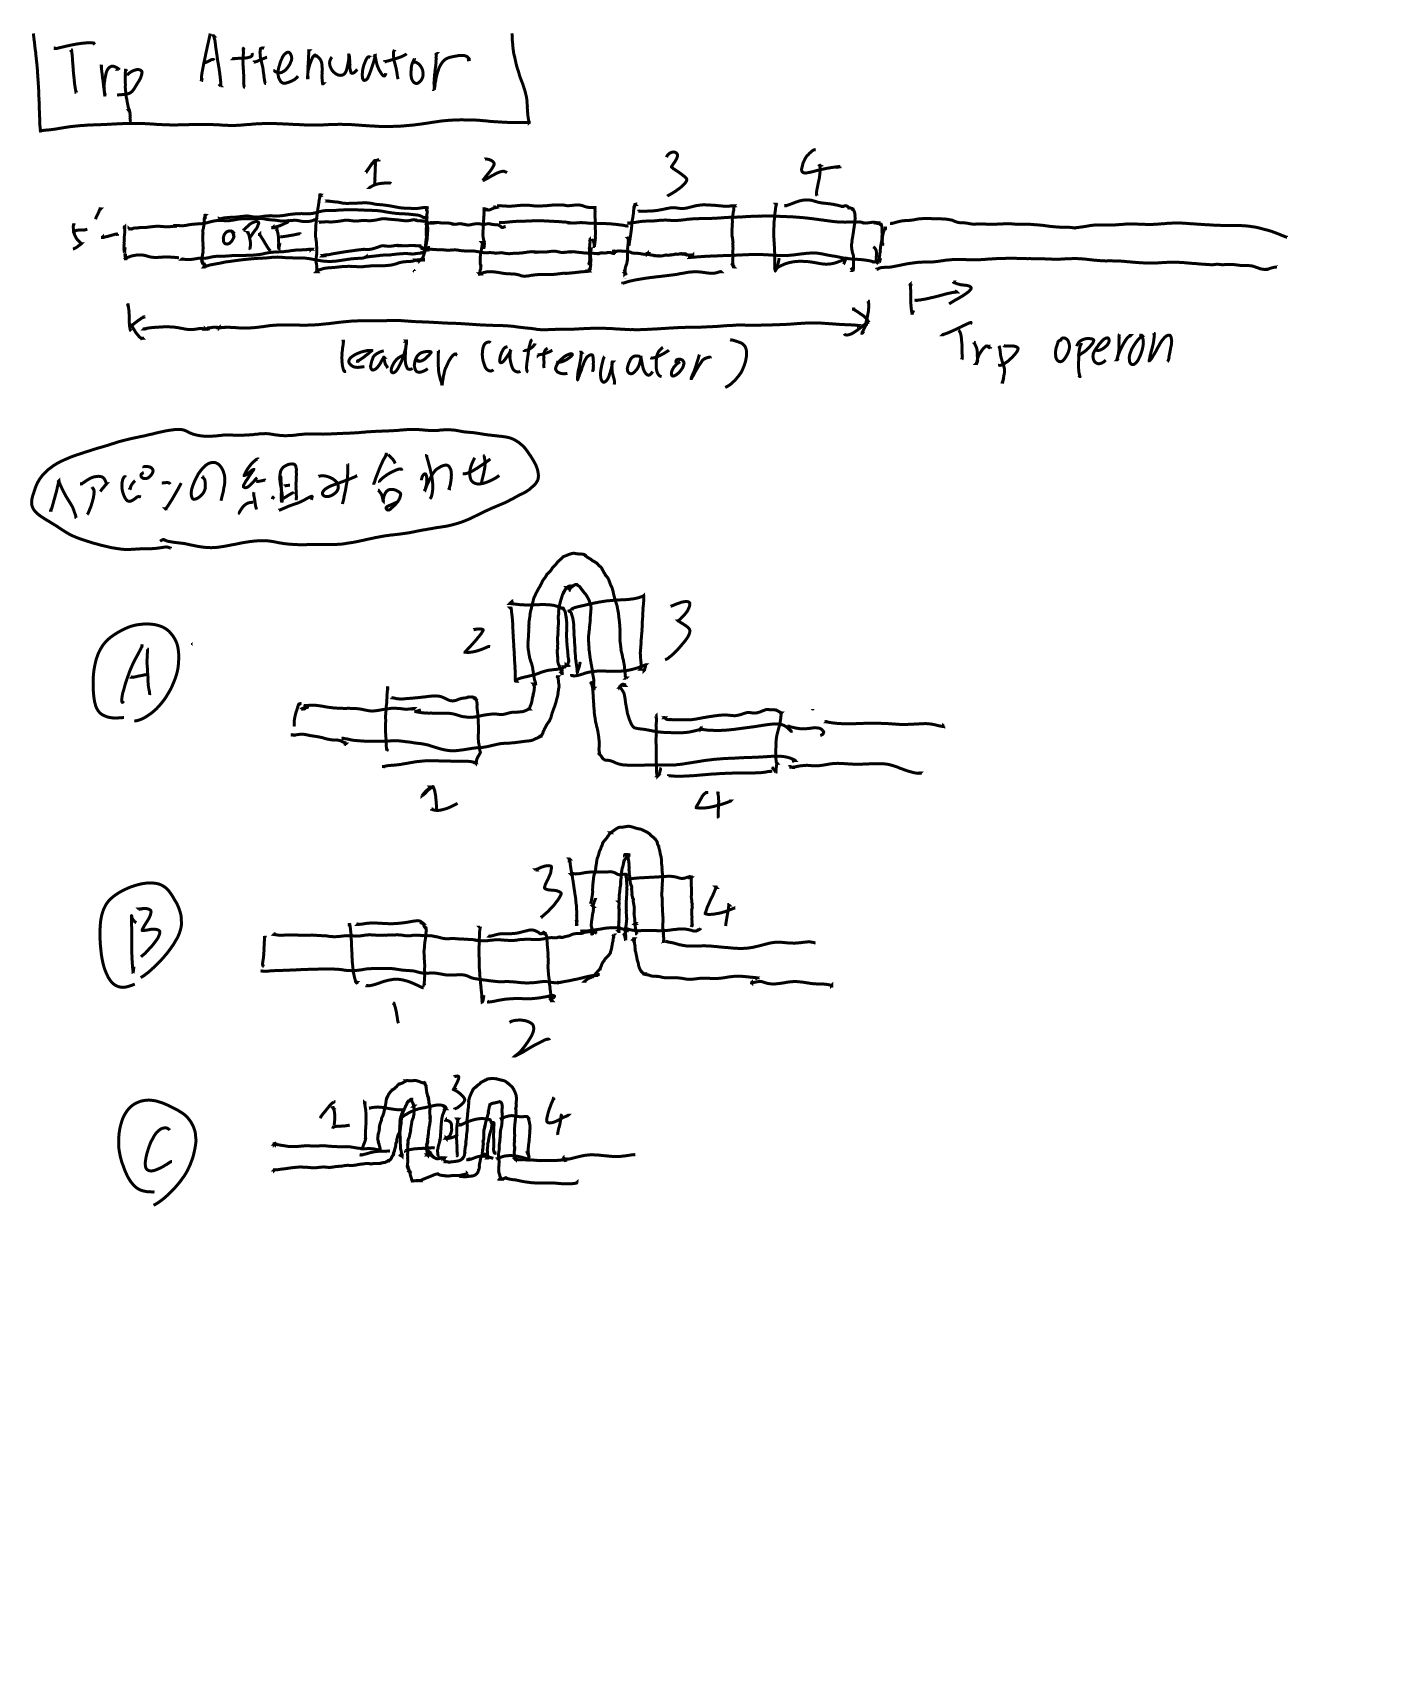 Trp Attenuator
1 2 3 4
5'- ORF
leader (attenuator)
Trp operon
ヘアピンの組み合わせ
A
2 3
1 4
B
3 4
1 2
C
1 2 3 4